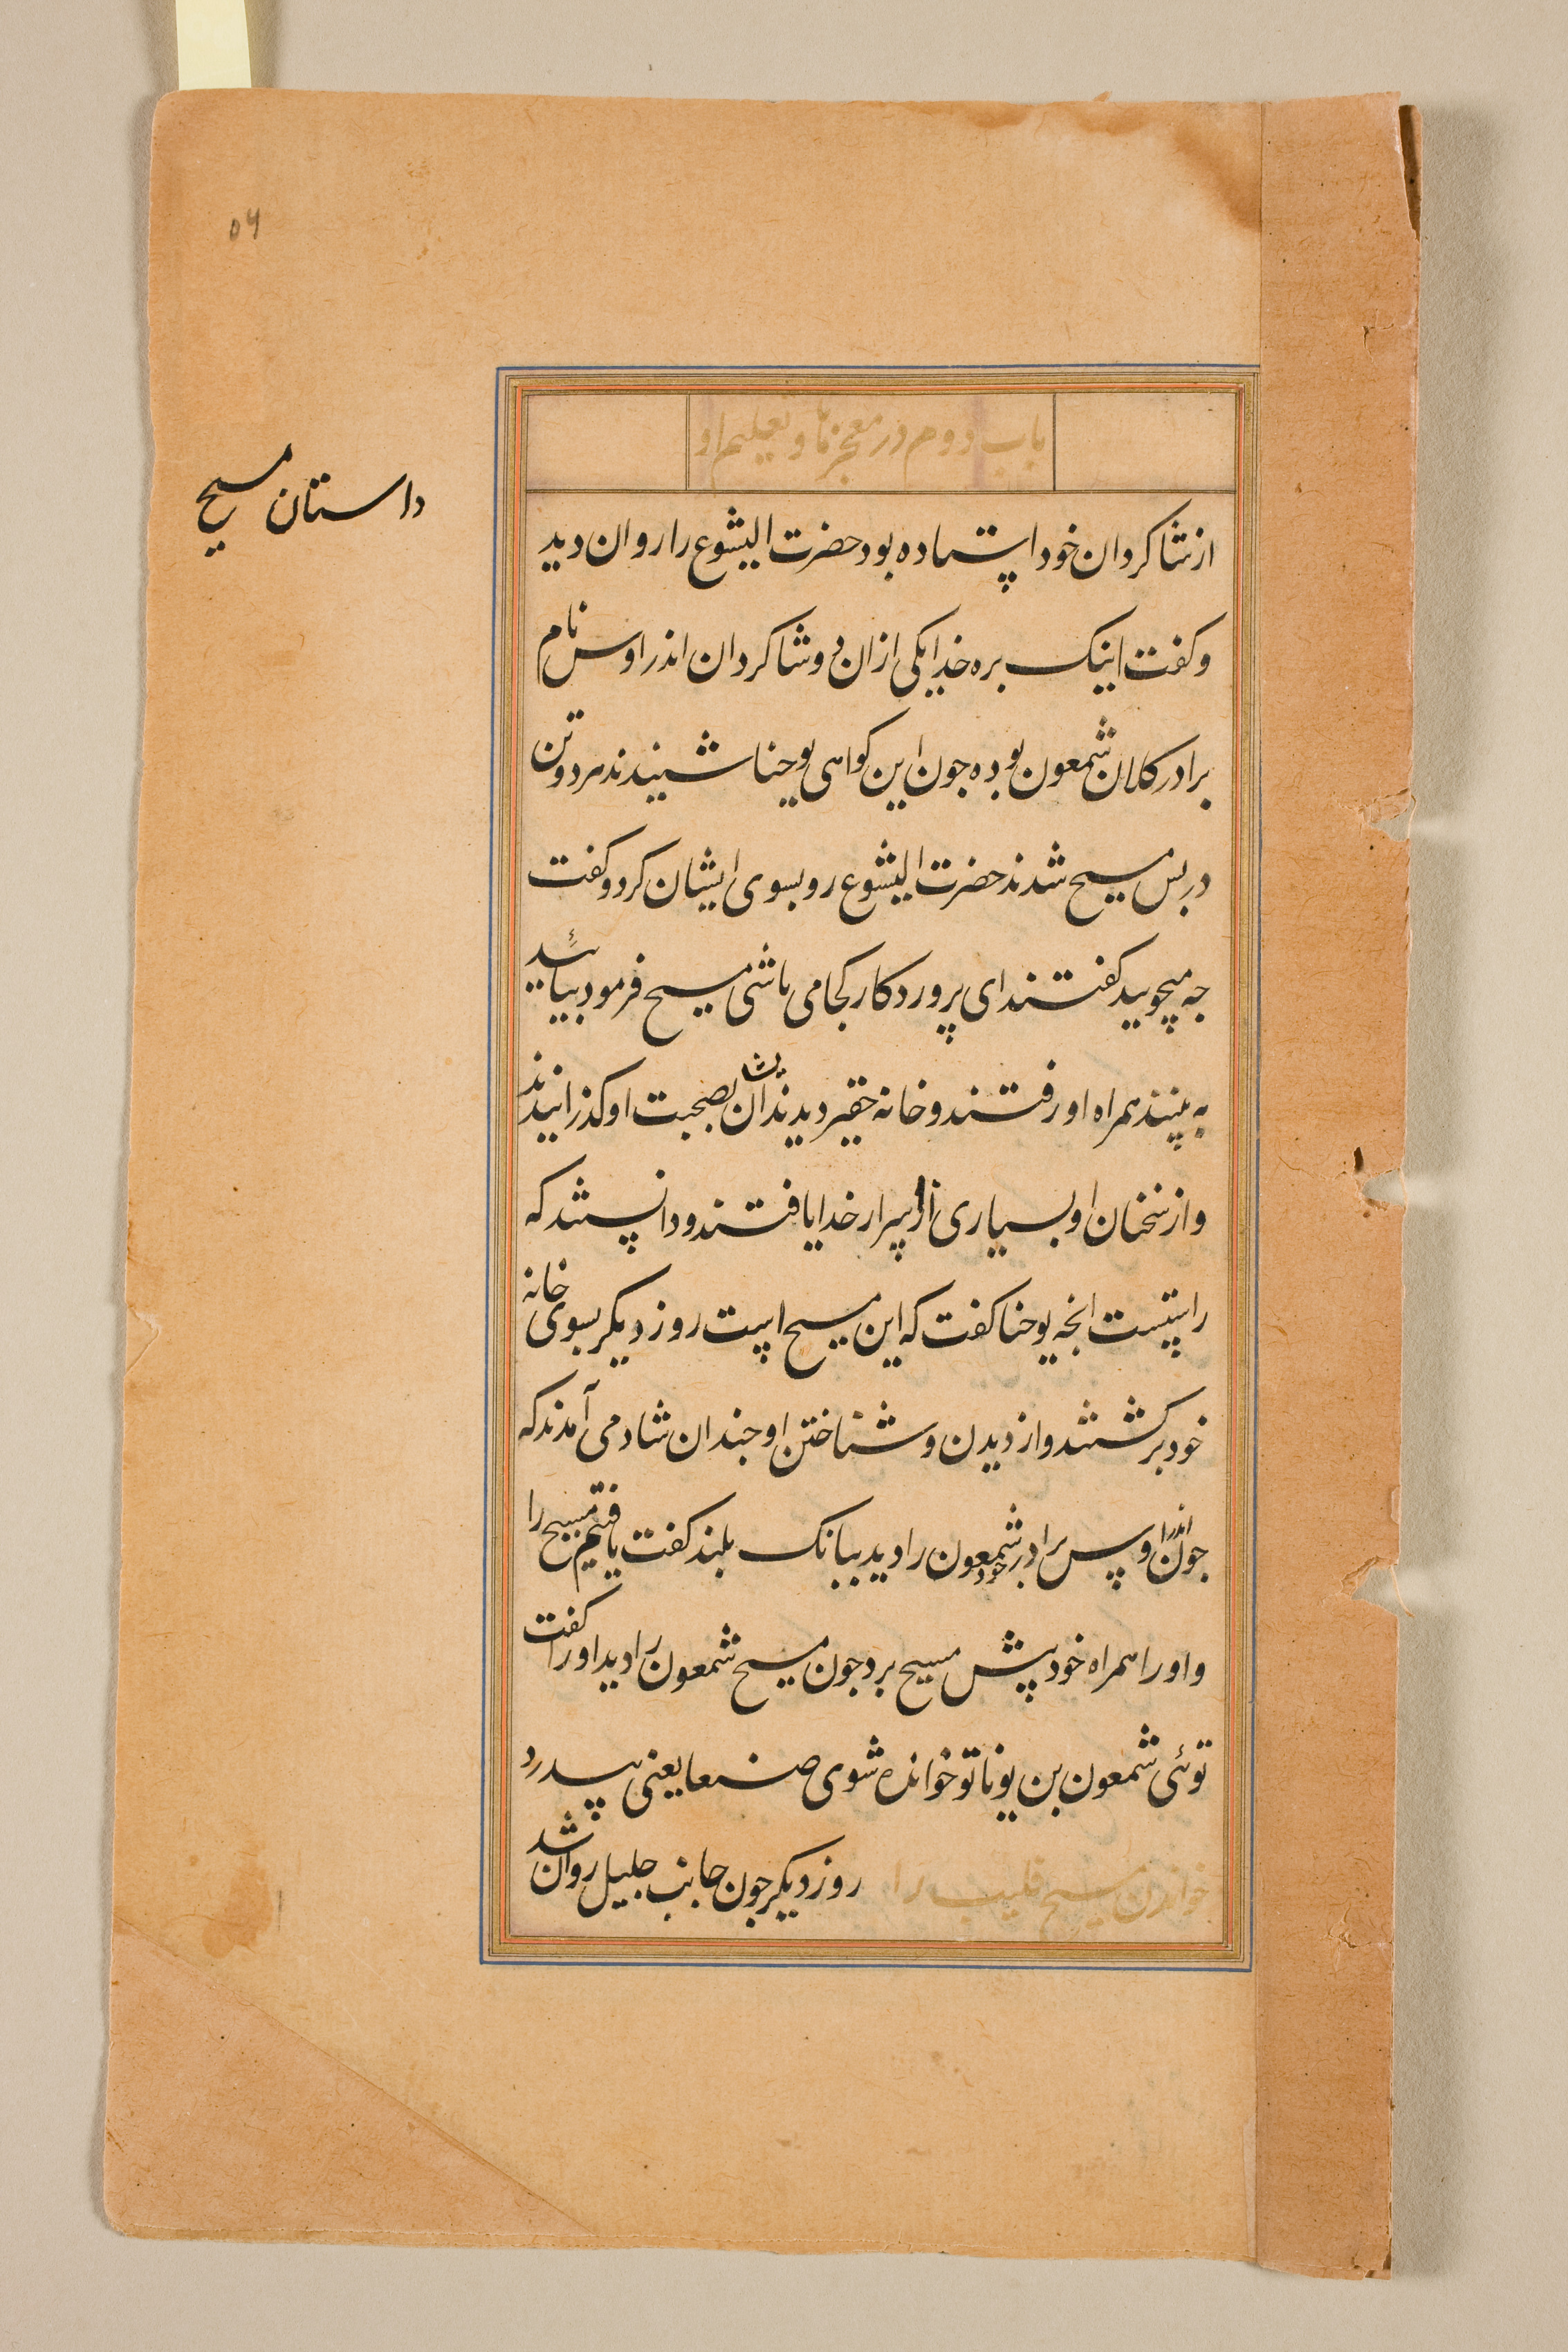 ۵۶
باب دوم در معجزها و تعلیم او
داستان مسیح
از شاکردان خود استاده بود حضرت الیشوع را روان دید
و کفت اینک بره خدا یکی ازان دو شاکردان اندراوس نام
برادر کلان شمعون بوده جون این کواهی یوحنا شنیدند هر دو تن
در بس مسیح شدند حضرت الیشوع رو بسوی ایشان کرد و کفت
جه میجویید کفتند ای پروردکار کجا می باشی مسیح فرمود بیائید
به بینند همراه او رفتند و خانه حقیر دیدند ان شب بصحبت او کذرانیدند
و از سخنان او بسیاری از اسرار خدا یافتند و دانستند که
راستست انجه یوحنا کفت که این مسیح است روز دیکر بسوی خانه
خود برکشتند و از دیدن و شناختن او جندان شاد می آمدند که
جون اندراوس برادر خود شمعون را دید ببانک بلند کفت یافتیم مسیح را
و او را همراه خود پیش مسیح برد جون مسیح شمعون را دید او را کفت
توئی شمعون بن یونا تو خوانده شوی صفا یعنی پدرد
خواندن مسیح فلیب را روز دیکر جون جانب جلیل روان شد